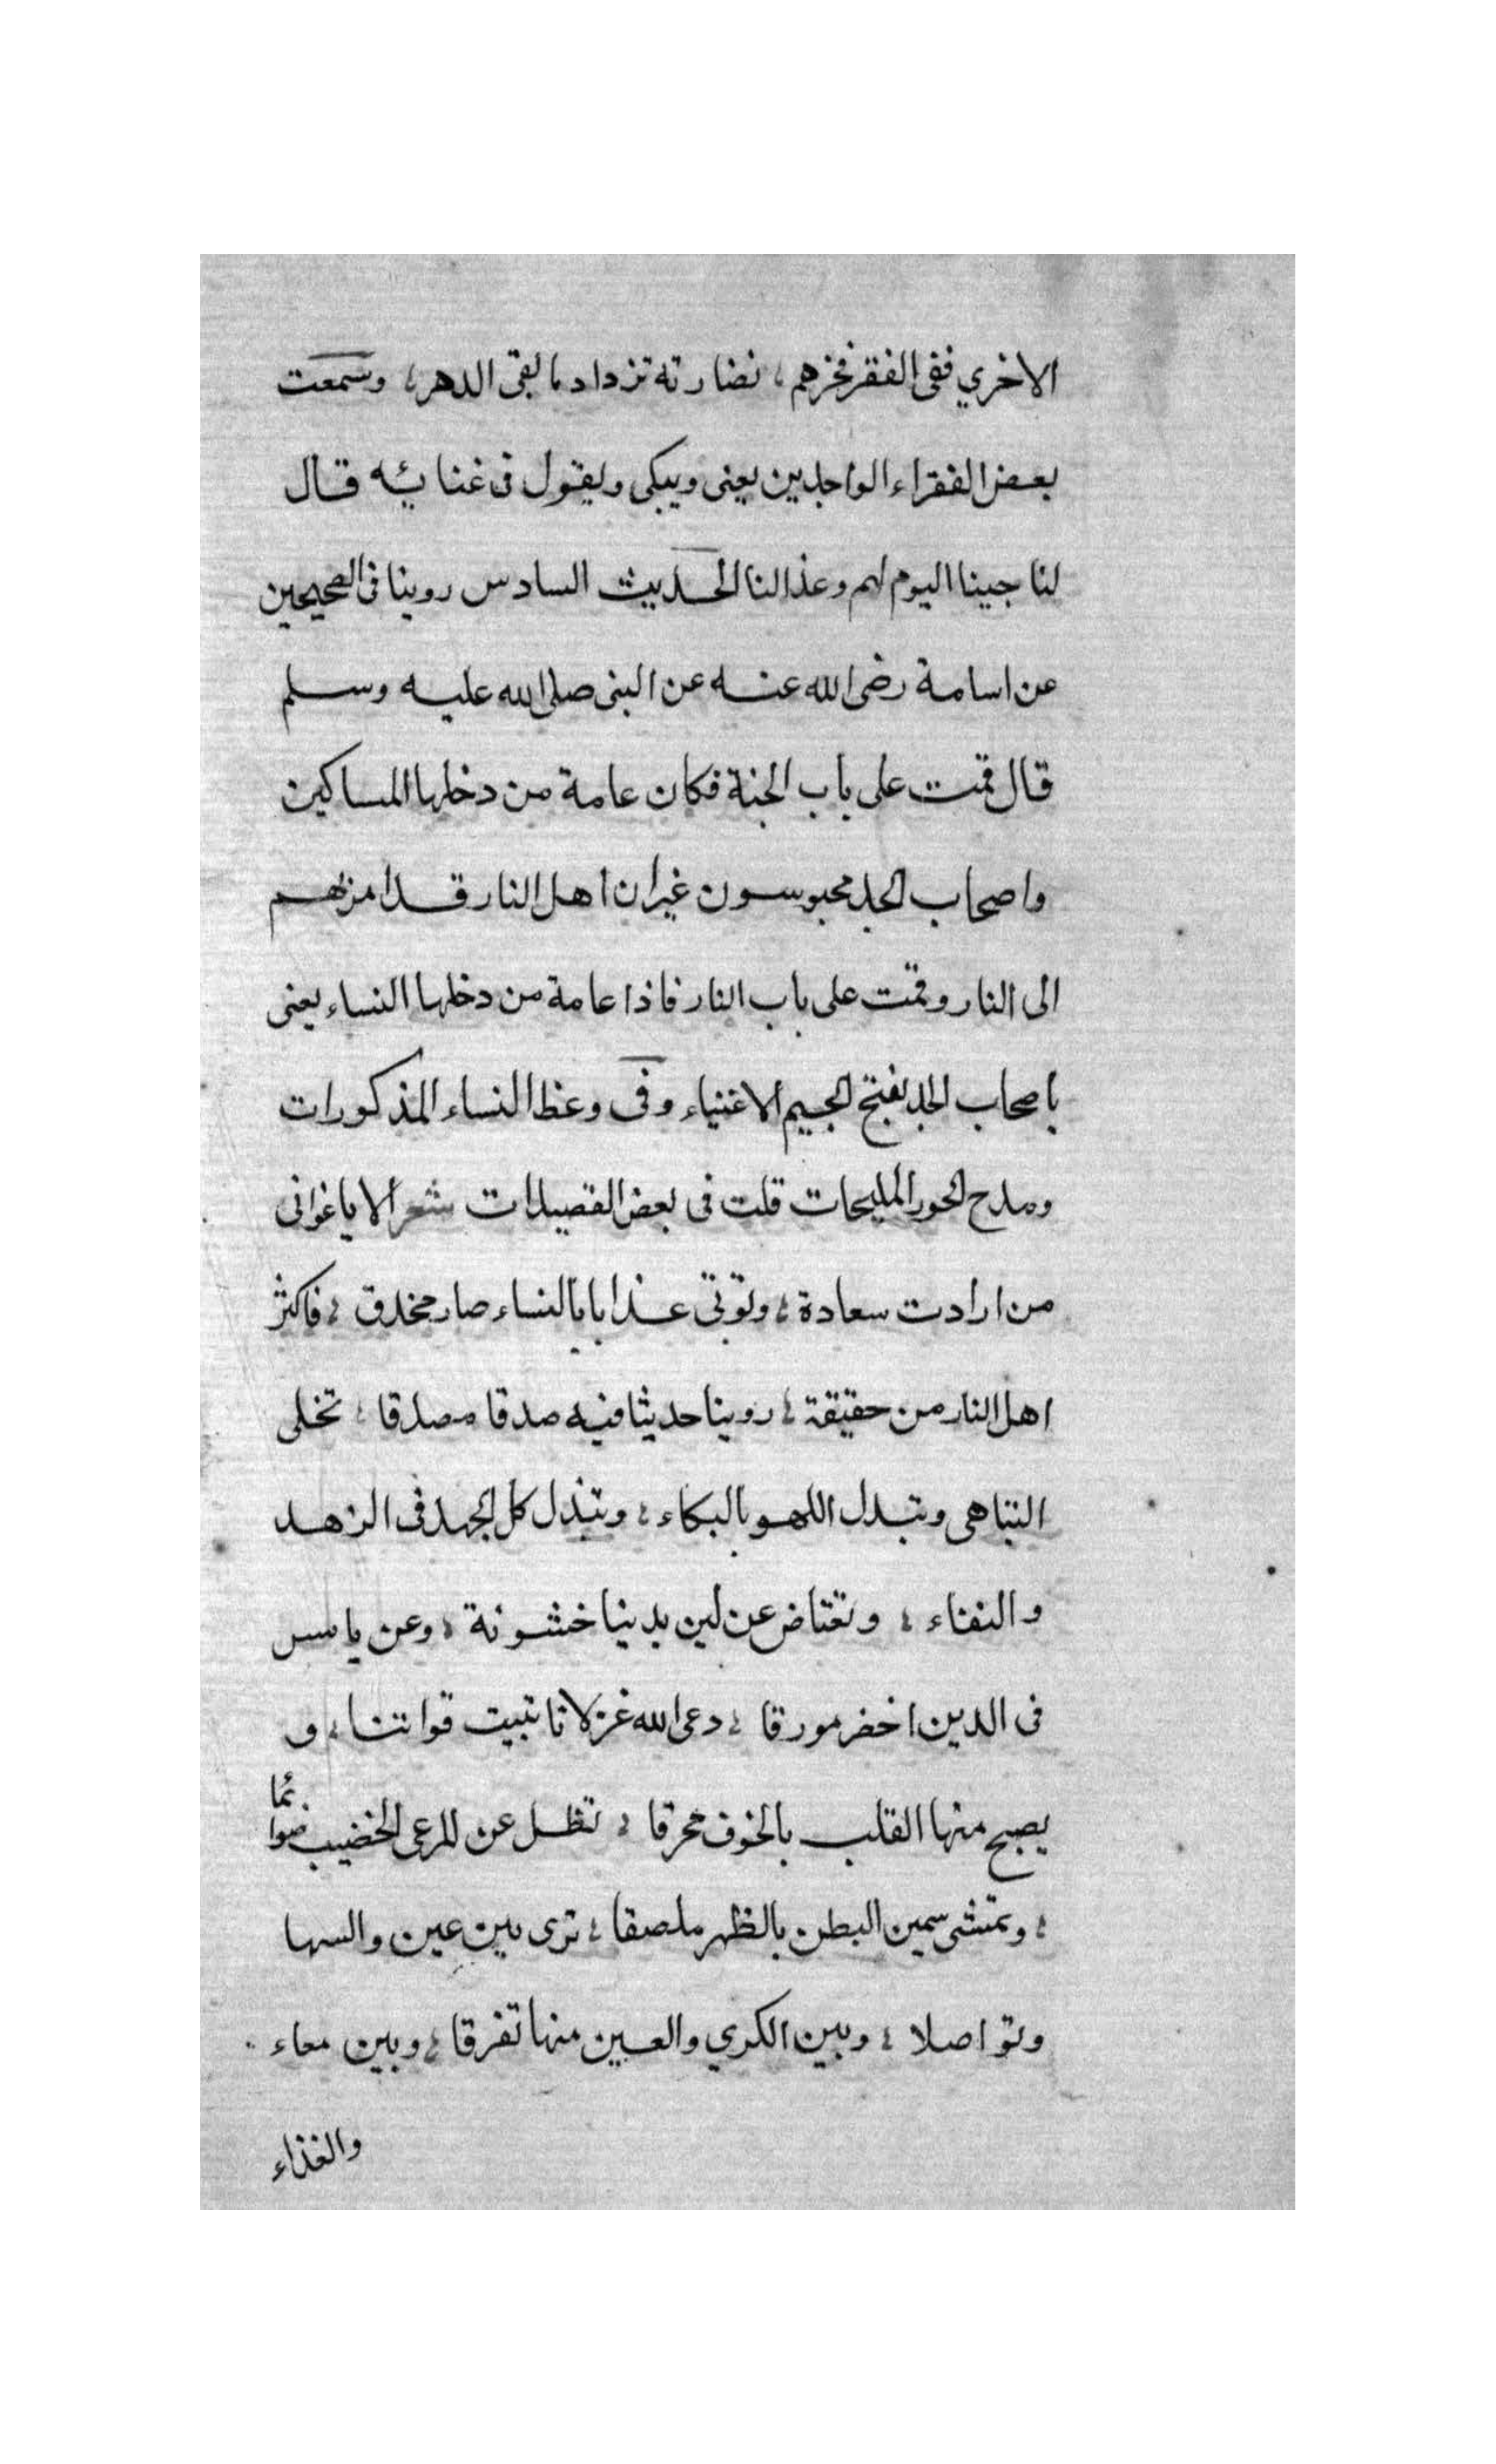 الاخري ففى الفقر فخرهم ، نضارته تزداد ما بقى الدهر ، وسمعت
بعض الفقراء الواجدين يعنى ويبكى ويقول فى غنائه قال
لنا جينا اليوم لهم وعذالنا الحديث السادس روينا فى الصحيحين
عن اسامة رضى الله عنه عن النبى صلى الله عليه وسلم
قال قمت على باب الجنة فكان عامة من دخلها المساكين
واصحاب الجد محبوسون غير ان اهل النار قد امر بهم
الى النار وقمت على باب النار فاذا عامة من دخلها النساء يعنى
باصحاب الجد بفتح الجيم الاغنياء وفى وعظ النساء المذكورات
ومدح الحور المليحات قلت فى بعض القصيدات شعر الا يا غوانى
من ارادت سعادة ؛ وتوقى عذابا بالنساء صار محدق ؛ فاكثر
اهل النار من حقيقة ؛ روينا حديثا فيه صدقا مصدقا ؛ تخلى
التباهى وتبدل اللهو بالبكاء ؛ وتبذل كل الجهد فى الزهد
والنقاء ؛ وتعتاض عن لين بدنيا خشونة ؛ وعن يابس
فى الدين اخضر مورقا ؛ دعى الله غزلانا تبيت قوانتا ؛ و
يصبح منها القلب بالخوف محرقا ؛ تظل عن المرعى الخضيب صوائما
؛ وتمشى سمين البطن بالظهر ملصقا ؛ ترى بين عين والسها
وتواصلا ؛ وبين الكري والعين منها تفرقا ؛ وبين معاء
والغذاء